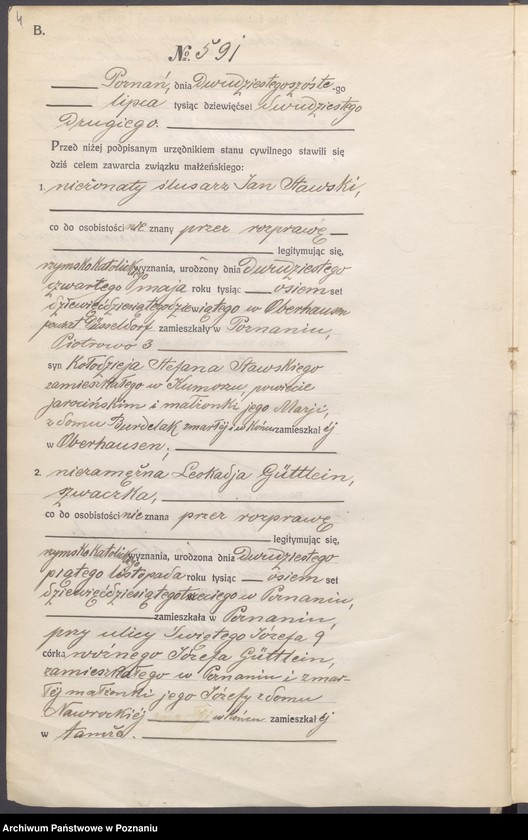 4
B.
№ 591
Poznań, dnia Dwudziestegoszóste-go
lipca tysiąc dziewięćset Dwudziestego
Drugiego.
Przed niżej podpisanym urzędnikiem stanu cywilnego stawili się
dziś celem zawarcia związku małżeńskiego:
1. nieżonaty ślusarz Jan Stawski,
co do osobistości nie znany przez rozprawę
legitymując się,
rzymsko katolickiego wyznania, urodzony dnia Dwudziestego
czwartego maja roku tysiąc osiem set
dziewięćdziesiątegodziewiątego w Oberhausen
powiat Düsseldorf zamieszkały w Poznaniu,
Piotrowo 3
syn Kołodzieja Stefana Stawskiego
zamieszkałego w Kumozu, powiecie
jarocińskim i małżonki jego Marji,
z domu Burdelak zmarłej i w końcu zamieszkał ej
w Oberhausen;
2. niezamężna Leokadja Güttlein,
szwaczka,
co do osobistości nie znana przez rozprawę
legitymując się,
rzymsko katolickiego wyznania, urodzona dnia Dwudziestego
piątego listopada roku tysiąc osiem set
dziewięćdziesiątegotrzeciego w Poznaniu,
zamieszkała w Poznaniu,
przy ulicy Świętego Józefa 9
córka woźnego Józefa Güttlein,
zamieszkałego w Poznaniu i zmar-
łej małżonki jego Józefy z domu
Nawrockiej w końcu zamieszkał ej
w tamże.
Archiwum Państwowe w Poznaniu